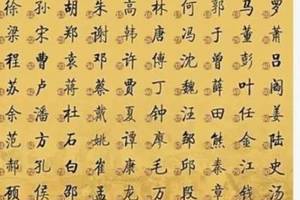 徐 孙 胡 朱 高 林 何 郭 马 罗
梁 宋 郑 谢 韩 唐 冯 于 董 萧
程 曹 袁 邓 许 傅 沈 曾 彭 吕
苏 卢 蒋 蔡 贾 丁 魏 薛 叶 阎
余 潘 杜 戴 夏 钟 汪 田 任 姜
范 方 石 姚 谭 廖 邹 熊 金 陆
郝 孔 白 崔 康 毛 邱 秦 江 史
顾 侯 邵 孟 龙 万 段 章 钱 汤